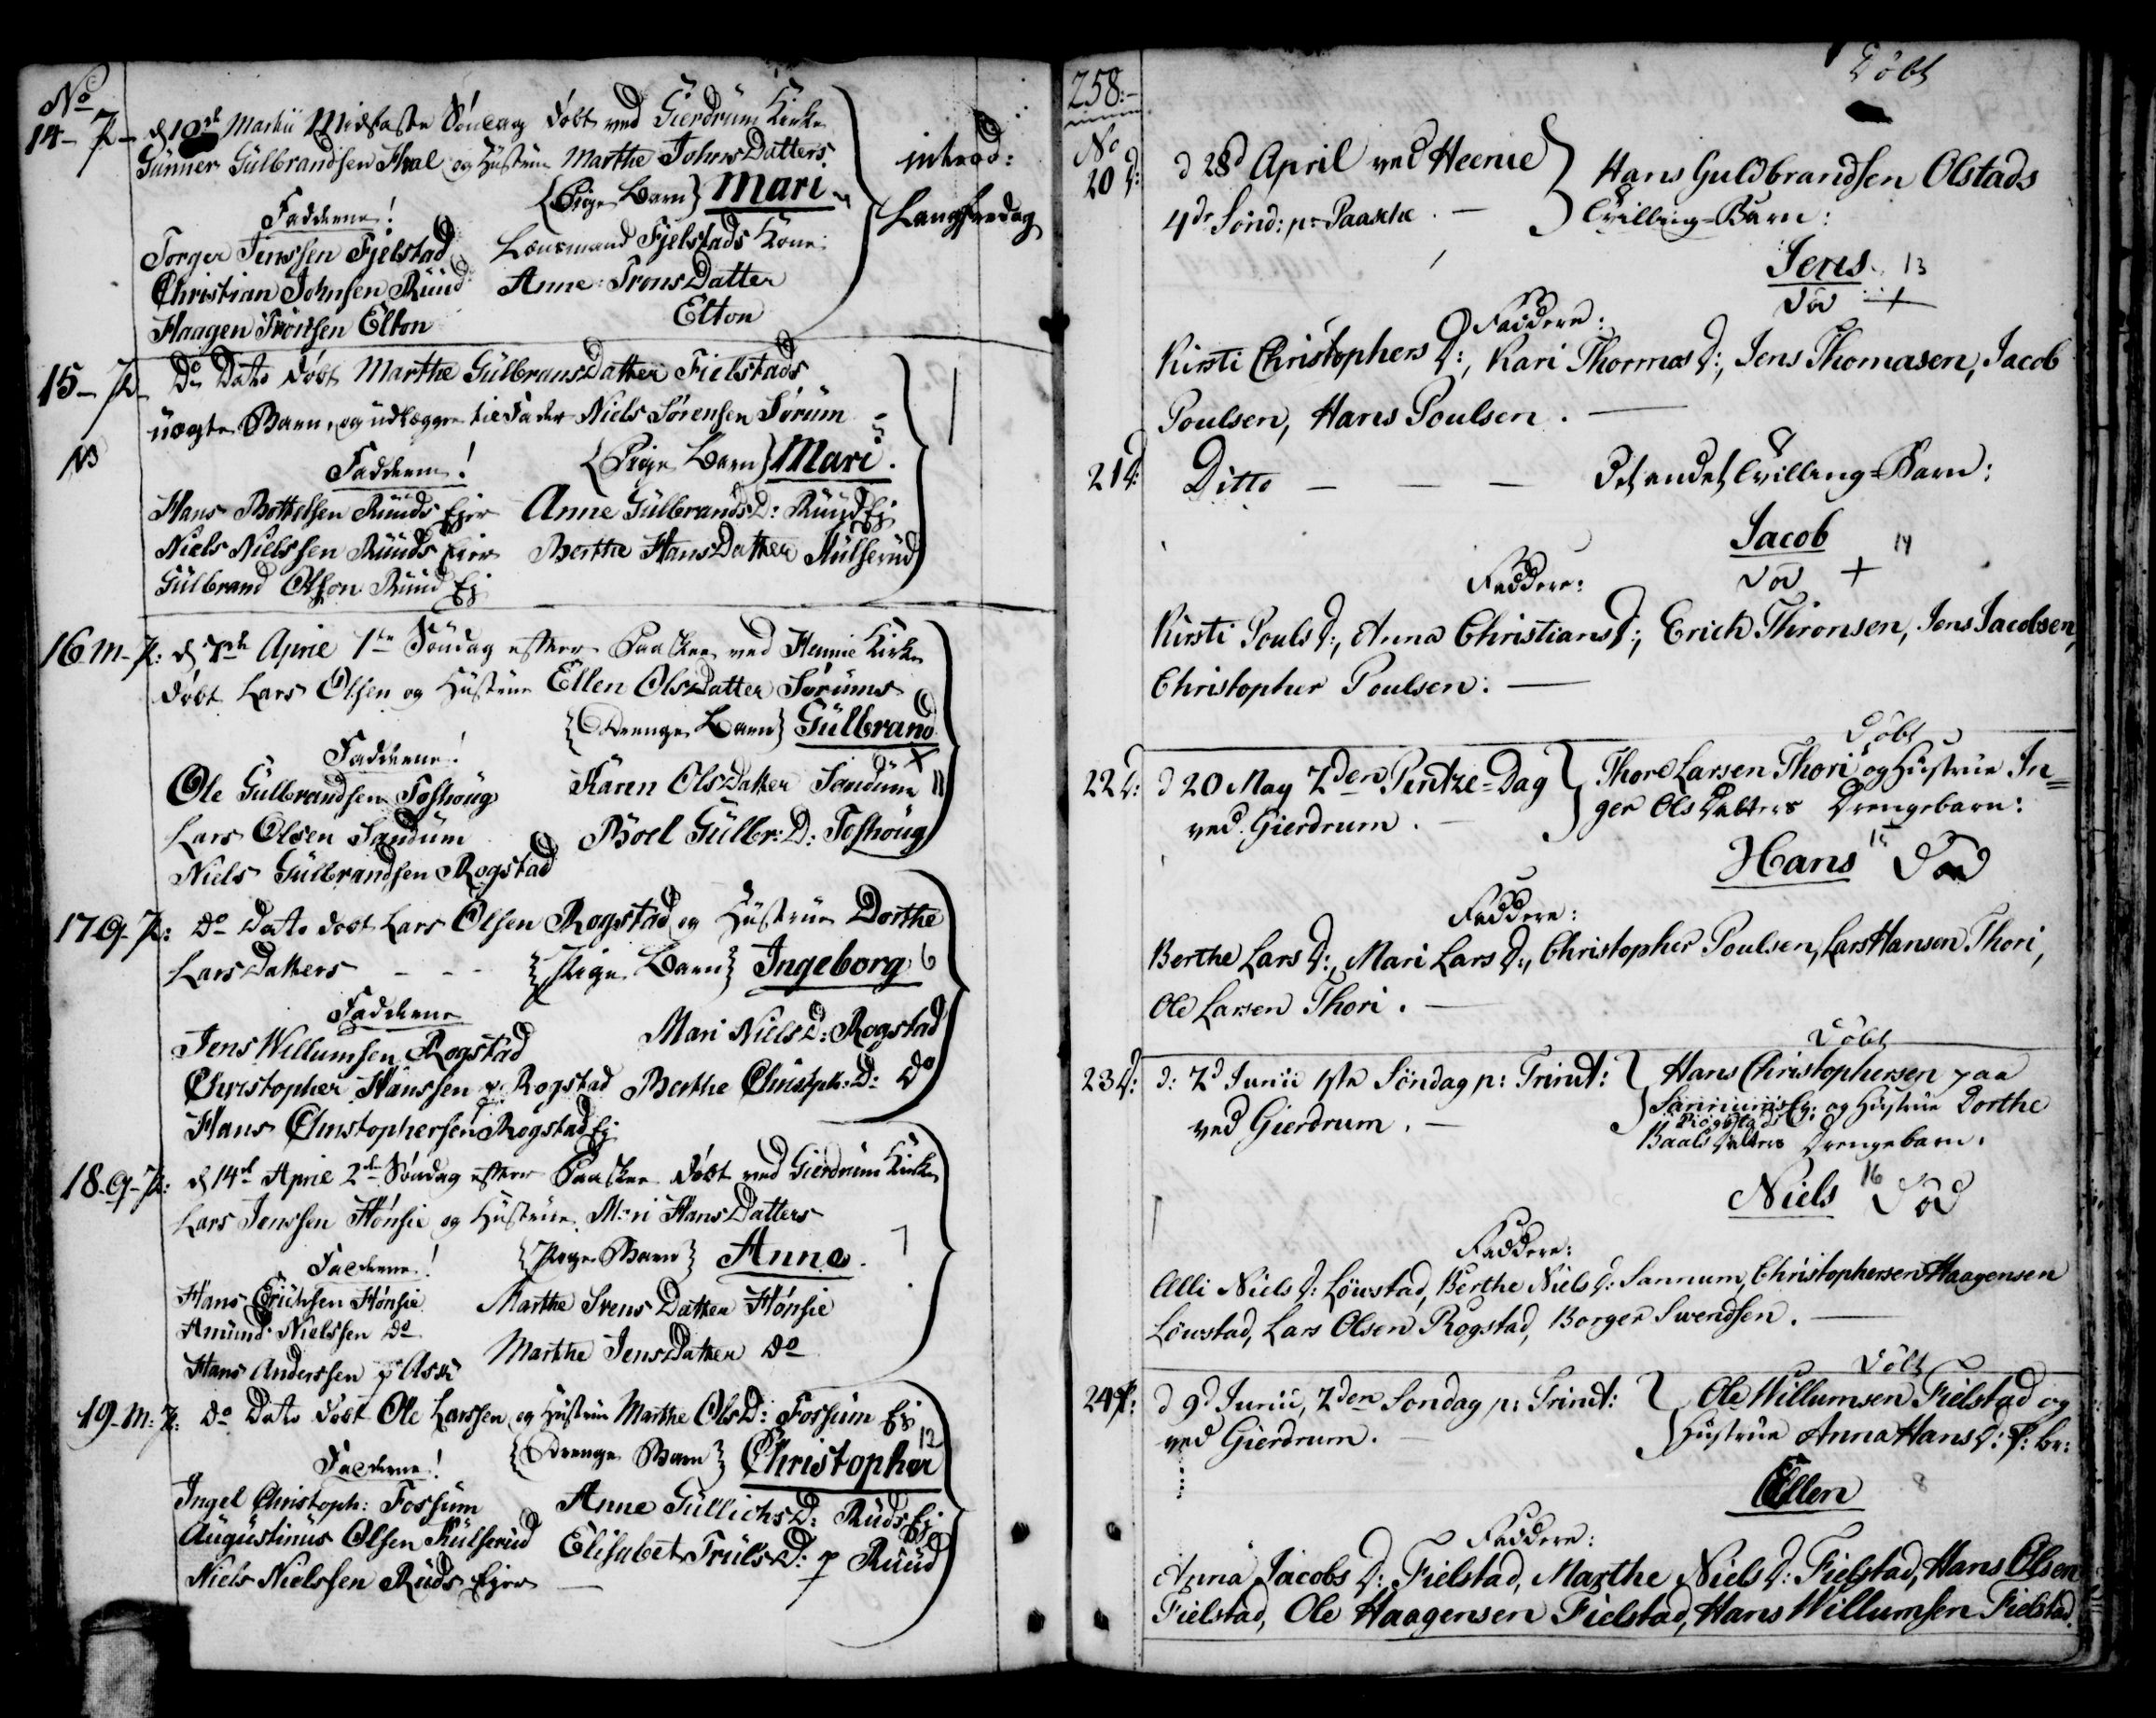 No
14- P- d 10de Martii Midfaste Søndag døbt ved Gierdrum Kirke
Gunner Gulbrandsen Hval og Hustrue Marthe Johns Datters
{Pige Barn} Mari
introd:
Langfredag
Fadderne!
Torger Jenssen Fjelstad Lensmand Fjelstads Kone
Christian Johnsen Ruud Anne Trons Datter
Haagen Tronsen Elton Elton
15- P- Do Dato døbt Marthe Gulbrans Datter Fielstads
uægte Barn, og udlægger til Fader Niels Sørensen Sørum
NB
Fadderne! {Pige Barn} Mari.
Hans Ruuds Ejer Anne Gulbrands D: Ruud Ej
Niels Nielssen Ruuds Ejer Berthe Hans Datter Hulserud
Gulbrand Olsen Ruud Ej
16 m- P: d 7de April 1te Søndag efter Paaske ved Heenie Kirke
døbt Lars Olsen og Hustrue Ellen Ols Datter Sørums
{Drenge Barn} Gulbrand
Fadderne! x
Ole Gulbrandsen Foshoug Karen Ols Datter Sandum 11
Lars Olsen Sandum Boel Gulbr: D: Foshoug
Niels Gulbrandsen Rogstad
17 Q- P: Do Dato døbt Lars Olsen Rogstad og Hustrue Dorthe
Lars Datters - - - {Pige Barn} Ingeborg 6
Fadderne
Jens Willumsen Rogstad Mari Niels D: Rogstad
Christopher Hanssen p Rogstad Berthe Christoph: D: Do
Hans Christophersen Rogstad Ej
18- Q- P: d 14de April 2den Søndag efter Paaske døbt ved Gierdrum Kirke
Lars Jenssen Hønsie og Hustrue Mari Hans Datters
Fadderne! {Pige Barn} Anne. 7
Hans Erichsen Hønsie Marthe Svens Datter Hønsie
Amund Nielssen Do
Hans Anderssen p Ask Marthe Jens Datter Do
19- M: P: Do Dato døbt Ole Larssen og Hustrue Marthe Ols D: Fossum Ej
Fadderne! {Drenge Barn} Christopher 12
Ingel Christoph: Fossum Anne Gullichs D: Ruds Ej
Augustinus Olsen Hulserud Elisabet Truls D: p Ruud
Niels Nielssen Ruds Ejer
258:-
Døbt
No
20 D: d 28d April ved Heenie } Hans Guldbrandsen Olstads
4de Sønd: p: Paasche. — Tvilling-Barn:
Jens. 13
Død +
Faddere:
Kirsti Christophers D:, Kari Thormos D:, Jens Thomasen, Jacob
Poulsen, Hans Poulsen. —
21 D: Ditto — — — Det andet Tvilling-Barn:
Jacob 14
Død +
Faddere:
Kirsti Pouls D:, Anna Christians D:, Erich Thronsen, Jens Jacobsen,
Christopher Poulsen: —
Døbt
22 D: d 20 May 2den Pintze-Dag } Thore Larsen Thori og Hustrue In=
ved Gierdrum. — ger Ols Datters Drengebarn:
Hans 15 Død
Faddere:
Berthe Lars D:, Mari Lars D:, Christopher Poulsen, Lars Hansen Thori,
Ole Larsen Thori. —
Døbt
23 D: d: 2d Junii 1ste Søndag p: Trinit: } Hans Christophersen paa
ved Gierdrum. — Sannums Eg: og Hustrue Dorthe
Rogstads
Baals Datters Drengebarn.
Niels 16 Død
Faddere:
Alli Niels D: Løwstad, Berthe Niels D: Sannum, Christophersen Haagensen
Løwstad, Lars Olsen Rogstad, Borger Swendsen. —
Døbt
24 P: d 9d Junii, 2den Søndag p: Trinit: } Ole Willumsen Fielstad og
ved Gierdrum. — Hustrue Anna Hans D: P: br:
Ellen 8
Faddere:
Anna Jacobs D: Fielstad, Marthe Niels D: Fielstad, Hans Olsen
Fielstad, Ole Haagensen Fielstad, Hans Willumsen Fielstad.